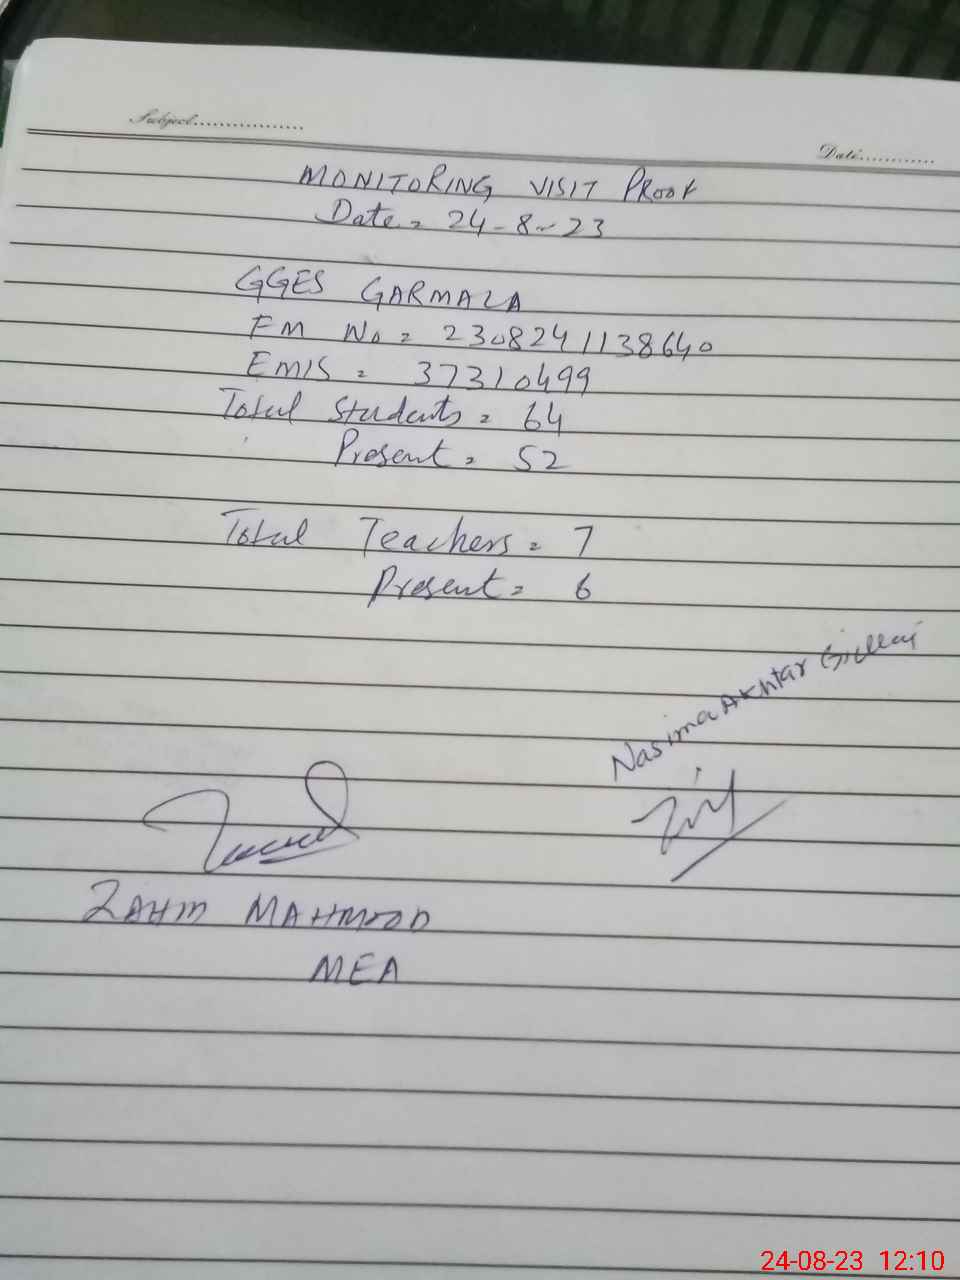 Subject.................
Date............
MONITORING VISIT PROOF
Date = 24-8-23
GGES GARMALA
FM No = 2308241138640
EMIS = 37310499
Total Students = 64
Present = 52
Total Teachers = 7
Present = 6
Nasima Akhtar
MAHMOOD
MEA
24-08-23 12:10